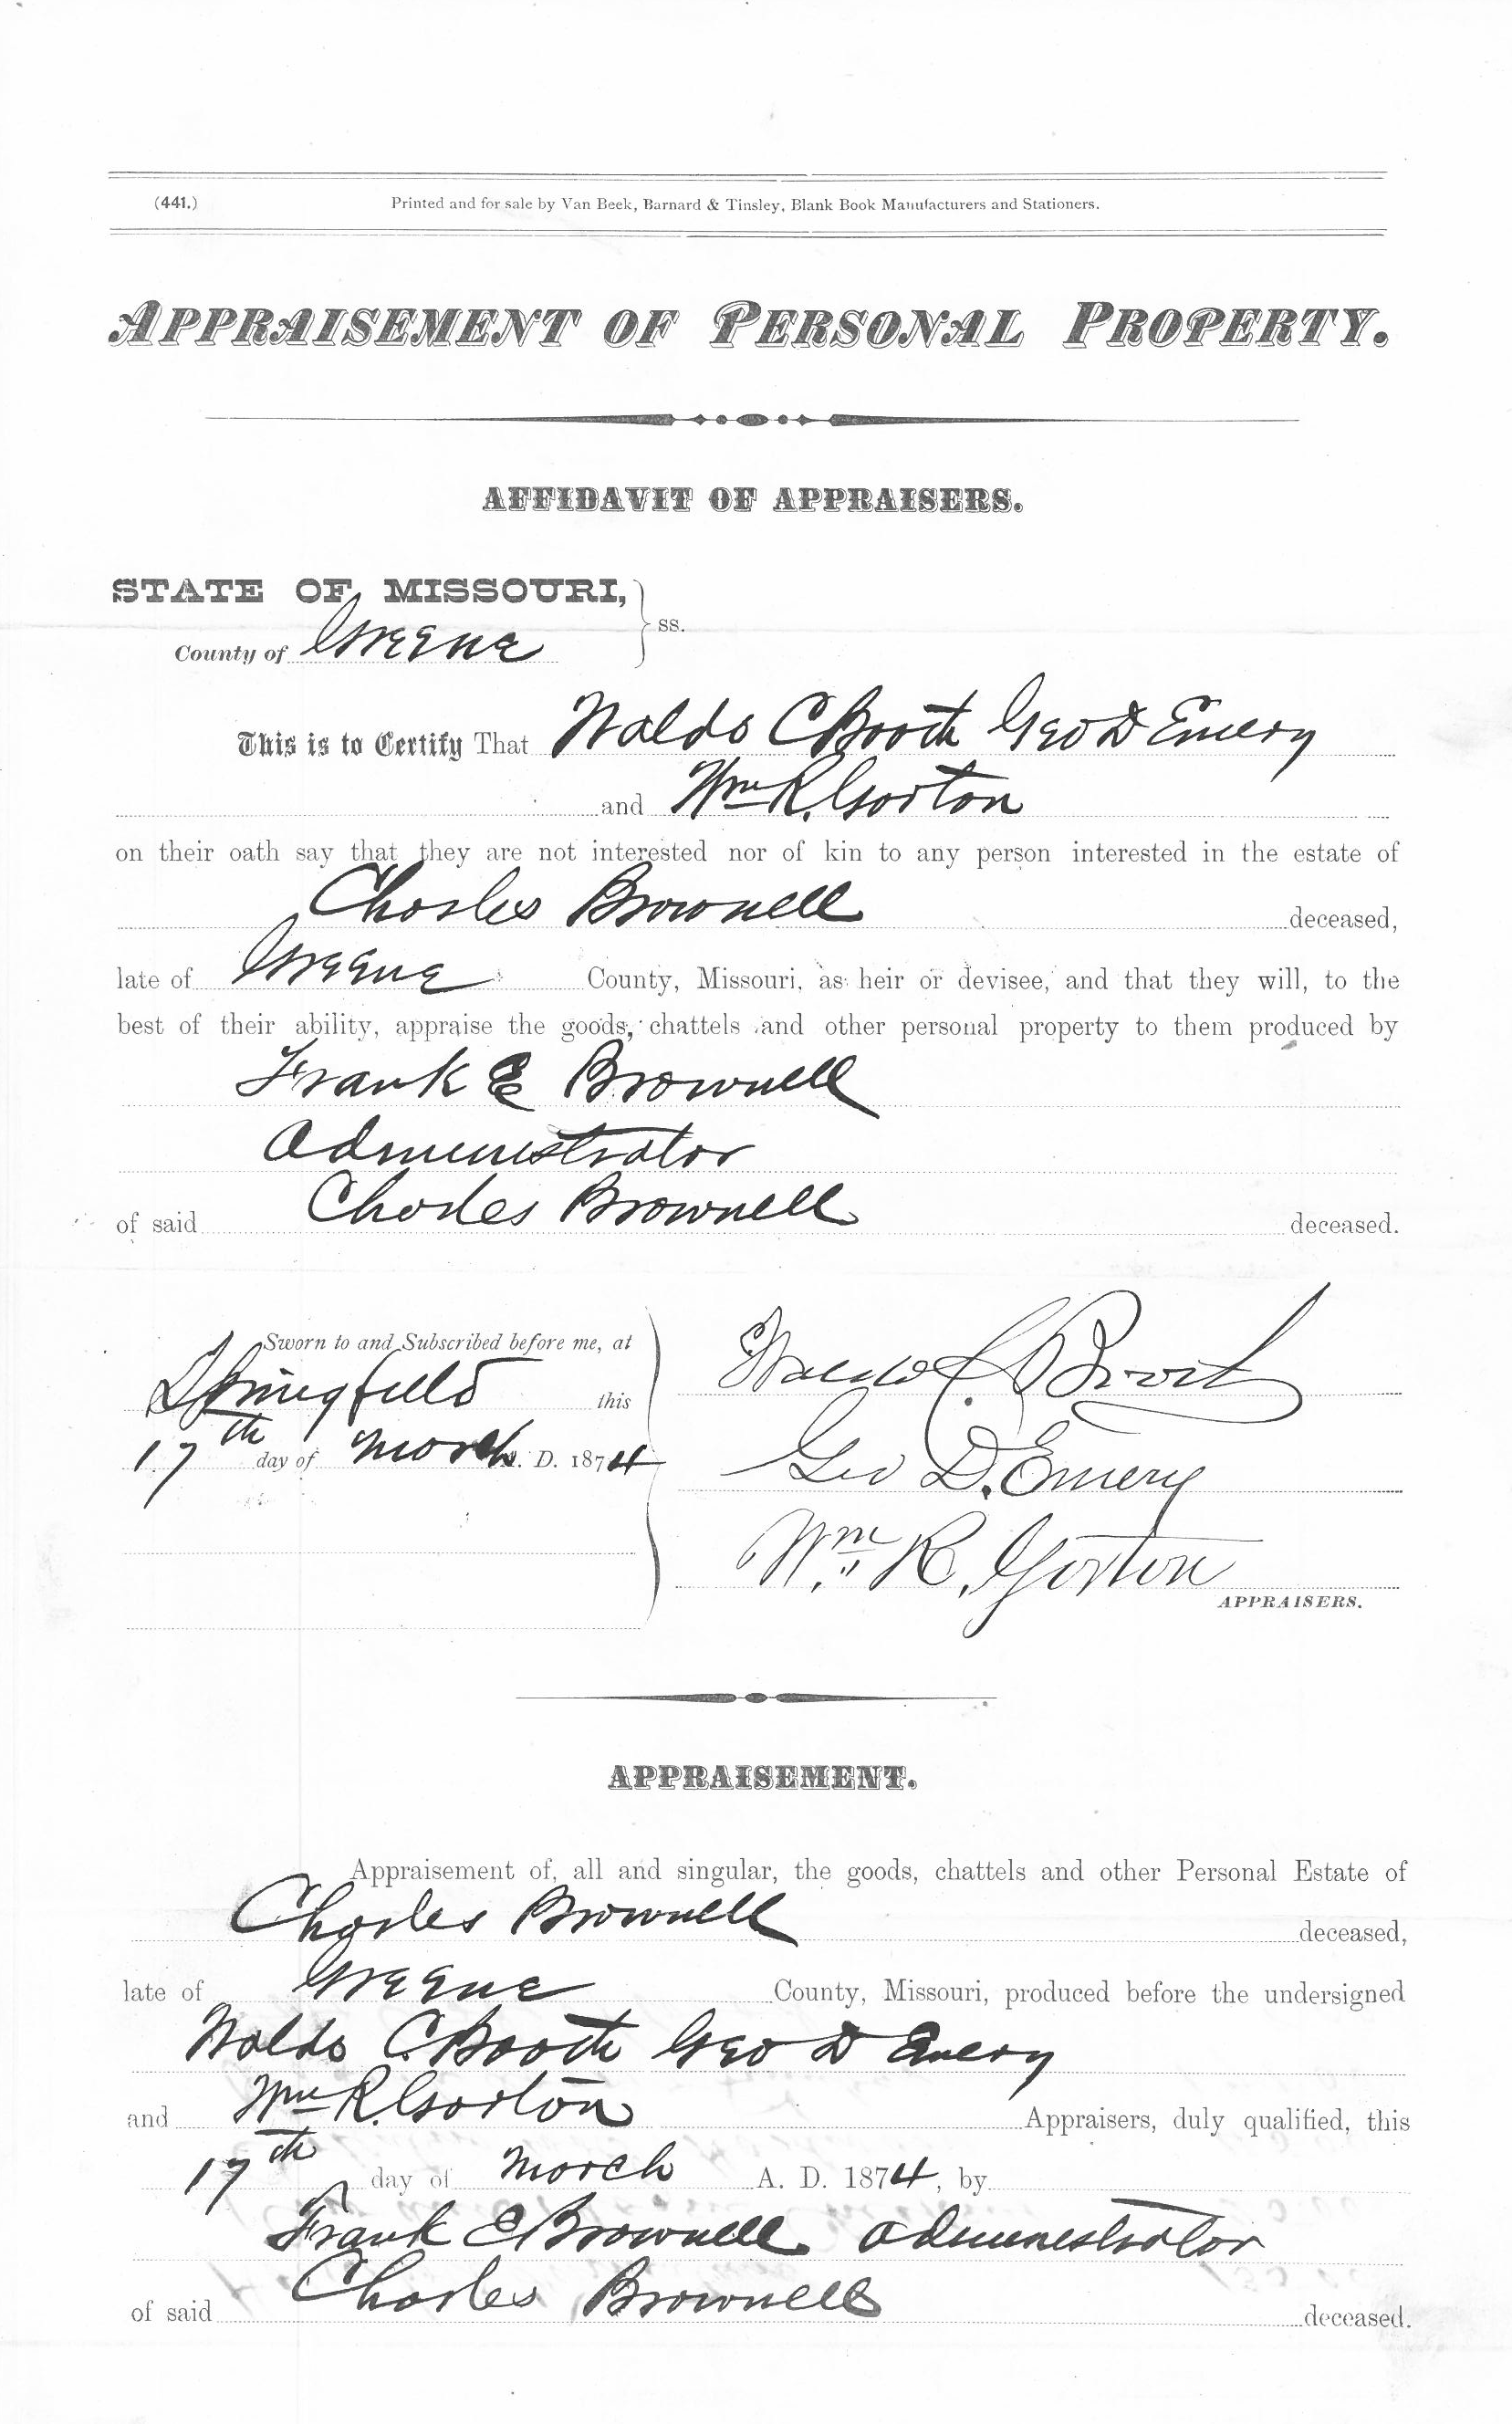 (441.) Printed and for sale by Van Beek, Barnard & Tinsley, Blank Book Manufacturers and Stationers.
APPRAISEMENT OF PERSONAL PROPERTY.
AFFIDAVIT OF APPRAISERS.
STATE OF MISSOURI,
County of Greene ss.
This is to Certify That Waldo C Booth Geo D Emery
and Wm R. Gorton
on their oath say that they are not interested nor of kin to any person interested in the estate of
Charles Brownell deceased,
late of Greene County, Missouri, as heir or devisee, and that they will, to the
best of their ability, appraise the goods, chattels and other personal property to them produced by
Frank E Brownell
Administrator
of said Charles Brownell deceased.
Sworn to and Subscribed before me, at
Springfield this
17th day of March A. D. 1874
Waldo C. Booth
Geo D. Emery
Wm R. Gorton
APPRAISERS.
APPRAISEMENT.
Appraisement of, all and singular, the goods, chattels and other Personal Estate of
Charles Brownell deceased,
late of Greene County, Missouri, produced before the undersigned
Waldo C. Booth Geo D Emery
and Wm R. Gorton Appraisers, duly qualified, this
17th day of March A. D. 1874, by
Frank E Brownell administrator
of said Charles Brownell deceased.